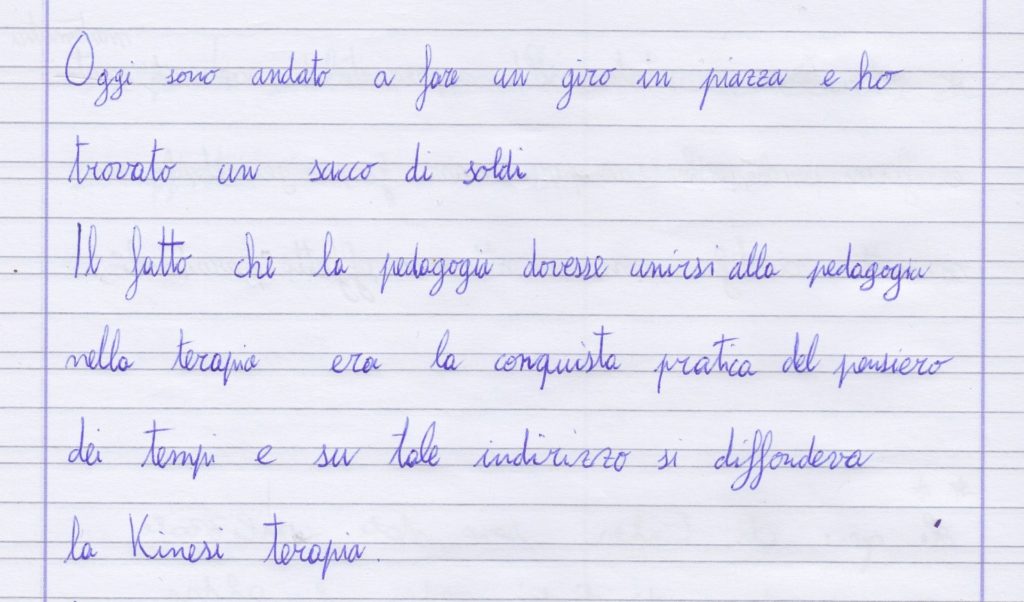 Oggi sono andato a fare un giro in piazza e ho
trovato un sacco di soldi
Il fatto che la pedagogia dovesse unirsi alla pedagogia
nella terapia era la conquista pratica del pensiero
dei tempi e su tale indirizzo si diffondeva
la Kinesi terapia.